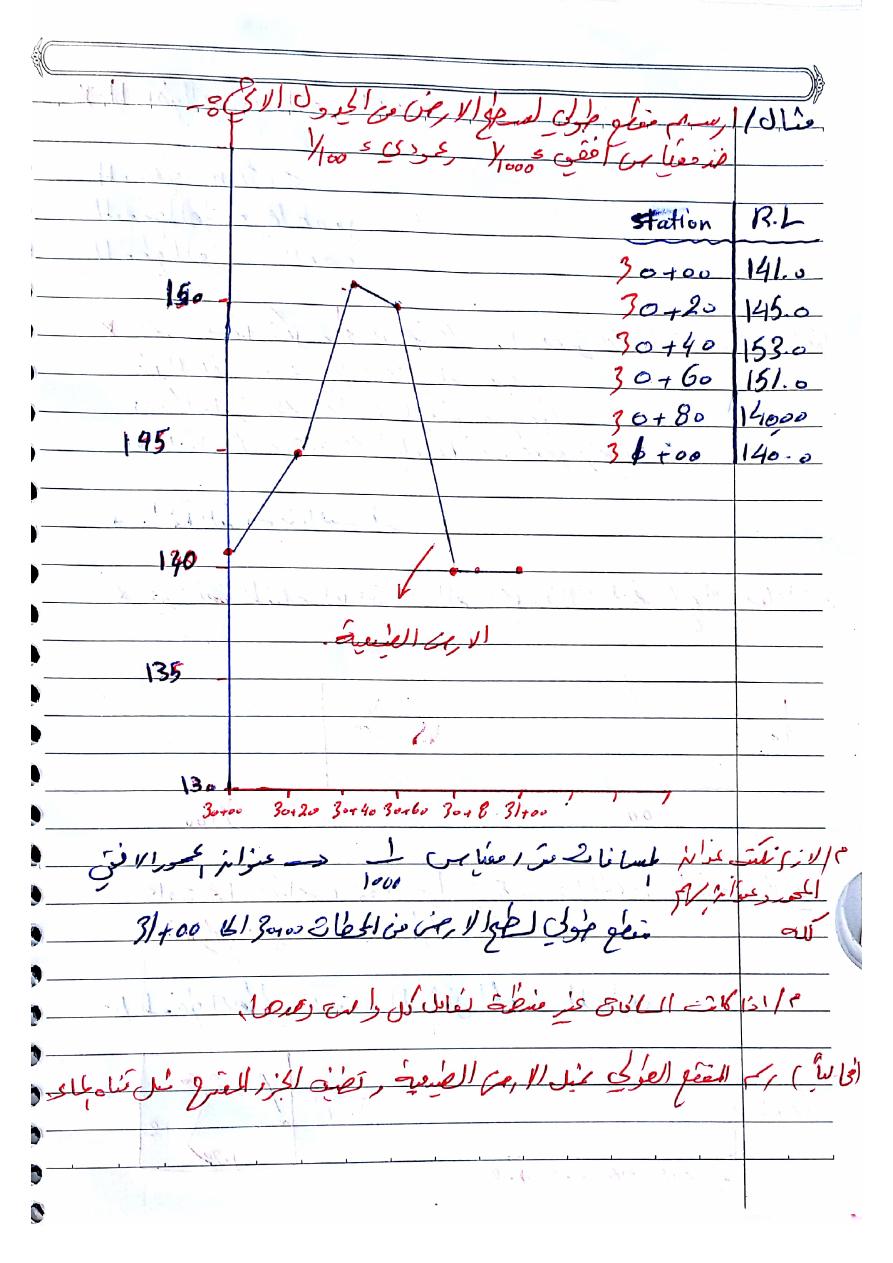 مثال/ ارسم مقطع طولي لسطح الارض من الجدول الاتي :-
خذ مقياس افقي 1/1000 وعمودي 1/100
station R.L
30+00 141.0
30+20 145.0
30+40 153.0
30+60 151.0
30+80 140.00
31+00 140.0
150
145
140
135
130
الارض الطبيعية
30+00 30+20 30+40 30+60 30+8 31+00
م/ لازم نكتب عنوان المسافات متر مقياس 1/1000 عنوان المحور الافقي
المحور وعنوان
كله مقطع طولي لسطح الارض من المحطات 30+00 الى 31+00
م/ اذا كانت النتائج غير منتظمة نعامل كل واحدة وحدها.
رسم المقطع الطولي يمثل الارض الطبيعية ونضيف الجزء المقترح مثل قناة